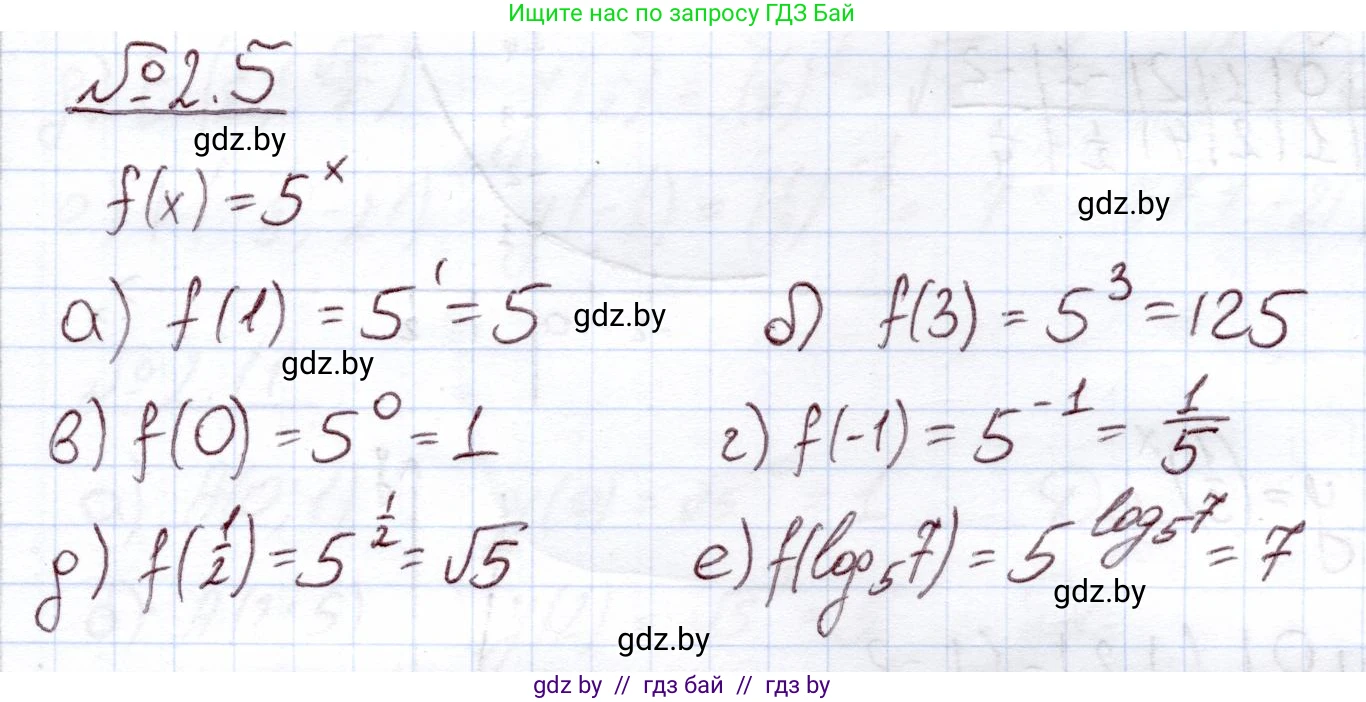 Ищите нас по запросу ГДЗ Бай
№2.5
gdz.by
f(x) = 5^x
gdz.by
а) f(1) = 5^1 = 5 gdz.by б) f(3) = 5^3 = 125
gdz.by
в) f(0) = 5^0 = 1 г) f(-1) = 5^-1 = 1/5
д) f(1/2) = 5^1/2 = √5 е) f(log₅7) = 5^log₅7 = 7
gdz.by
gdz.by
gdz by // гдз бай // гдз by